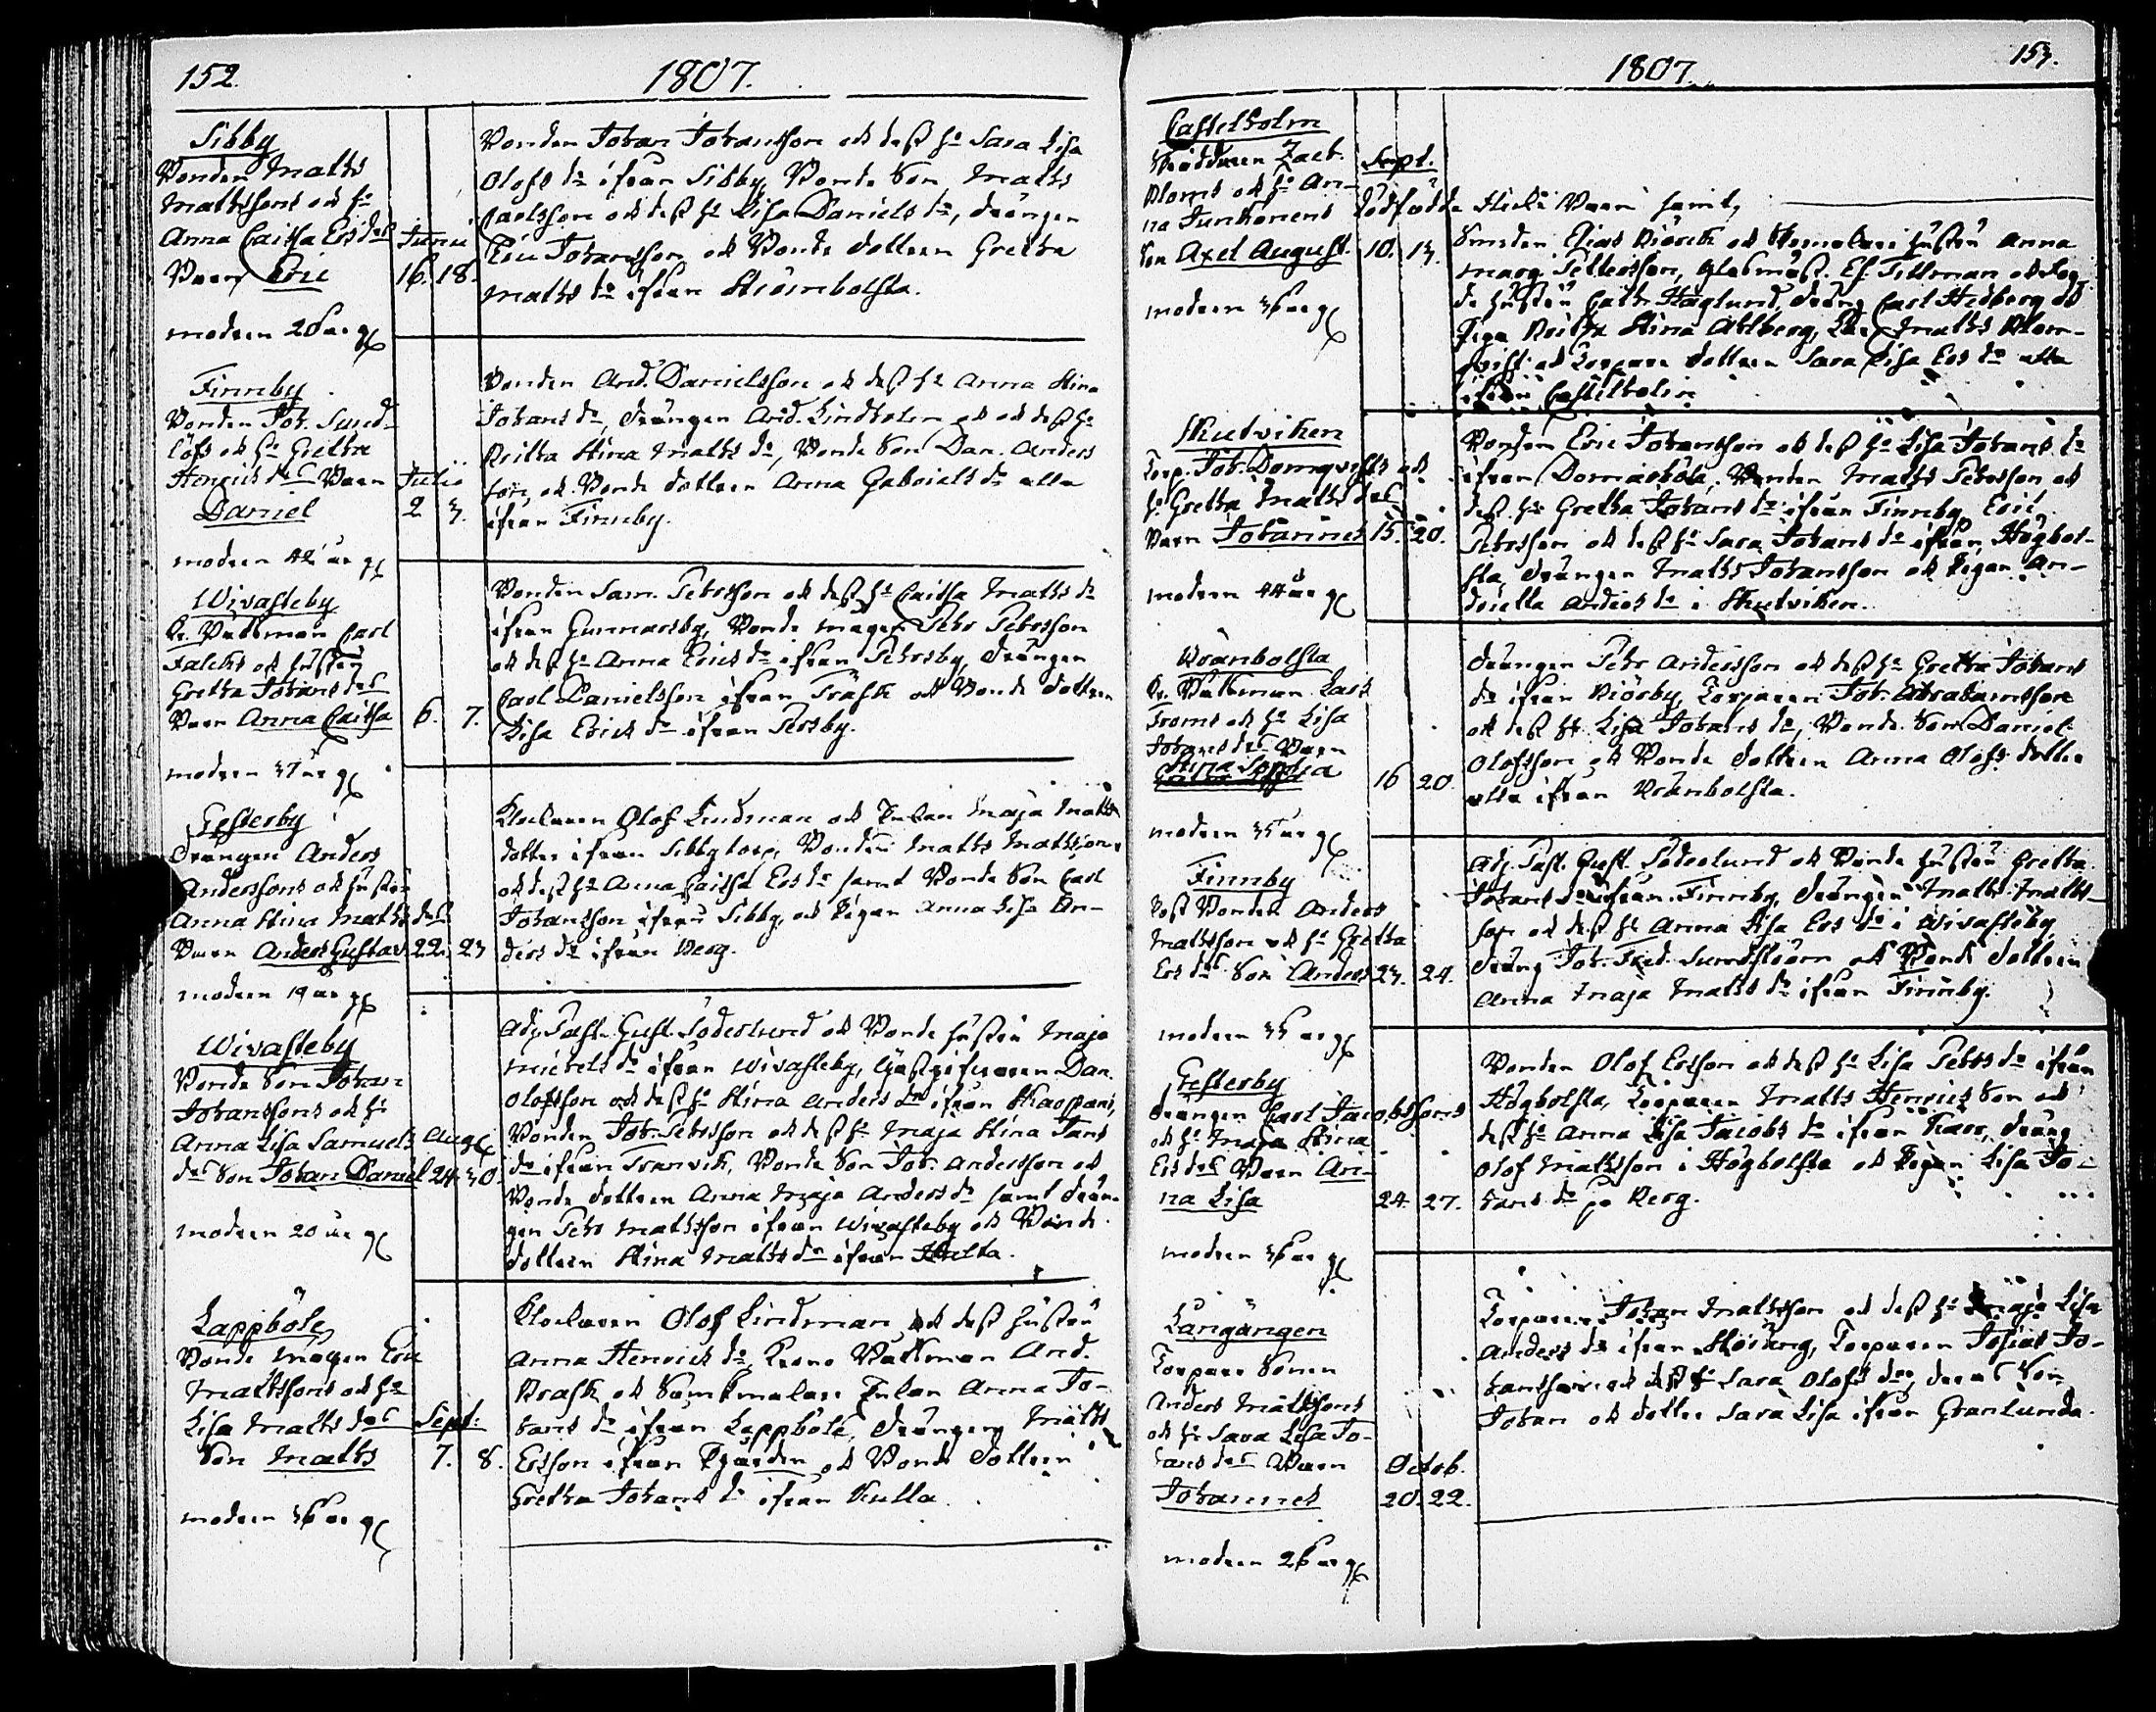 152.
1807.
Sibby
Bonden Matts
Mattssons och h:
Anna Caisa Ersd:s
Barn Eric
Junii
16. 18.
modern 28 år g
Bonden Johan Johansson och dess h: Sara Lisa
Olofs d: ifrån Sibby, Bonde Son Matts
Carlsson och dess h: Lisa Daniels d:, drängen
Eric Johansson och Bonde dottren Gretha
Matts d: ifrån Strömbolsta.
Finnby
Bonden Joh. Sund-
löfs och h: Gretha
Henrics d:s Barn
Daniel
Julii
2 3.
modern 42 år g
Bonden And. Danielsson och dess h: Anna Stina
Johans d:, drängen And. Lindholm och dess h:
Britha Stina Matts d:, Bonde Son Dan. Anders
son, och Bonde dottren Anna Gabriels d: alla
ifrån Finnby.
Wivasteby
Kr. Båttsman Carl
Falcks och hustru
Gretha Johans d:s
Barn Anna Caisa
6. 7.
modern 37 år g
Bonden Sam. Pehrsson och dess h: Caisa Matts d:
ifrån Gunnarsby, Bonde mågen Pehr Pehrsson
och dess h: Anna Erics d: ifrån Pehrsby, drängen
Carl Danielsson ifrån Träsk och Bonde dottren
Lisa Erics d: ifrån Persby.
Gesterby
Drängen Anders
Anderssons och hustru
Anna Stina Matts d:s
Barn Anders Gustav
22. 23
modern 19 år g
Klockaren Olof Lindman och Enkan Maja Matts
dotter ifrån Sibby torp, Bonden Matts Mattsson
och dess h: Anna Caisa Ers d: samt Bonde Son Carl
Johansson ifrån Sibby och Pigan Anna Lisa An-
ders d: ifrån Berg.
Wivasteby
Bonde Son Johan
Johanssons och h:
Anna Lisa Samuels
d:s Son Johan Daniel
Aug.
24. 30.
modern 20 år g
Adj. Past. Gust. Söderlund och Bonde hustru Maja
Michels d: ifrån Wivasteby, Gästgifvaren Dan.
Olofsson och dess h: Stina Anders d: ifrån Skarpans,
Bonden Joh. Pehrsson och dess h: Maja Stina Jans
d: ifrån Tranvik, Bonde Son Joh. Andersson och
Bonde dottren Anna Maja Anders d: samt drän-
gen Pehr Mattsson ifrån Wivasteby och Bonde
dottren Stina Matts d: ifrån Hulta.
Lappböle
Bonde Mågen Eric
Mattssons och h:
Lisa Matts d:s
Son Matts
Sept:
7. 8.
modern 36 år g
Klockaren Olof Lindman och dess hustru
Anna Henrics d:, Krono Båttsman And.
Brask och Enkan Anna Jo-
hans d: ifrån Lappböle, drängen Matts
Ersson ifrån Tjärden och Bonde dottren
Gretha Johans d: ifrån Kulla.
153.
1807.
Castelholm
Skräddaren Zach.
Bloms och h: An-
na Junkonens
Son Axel August.
Sept.
10. 13.
modern 36 år g
dödfödde flicke Barn samt,
Smeden Elias Björck och hustru Anna
Marg. Pettersson, Glasmäst. Ef. Tillman och
hustru Cath. Häglund, dräng Carl Hedberg och
Piga Britha Stina Ahlberg, Matts Blom-
qvist och Torpare dottren Sara Lisa Ers d: alla
ifrån Castelholm
Slutviken
Torp. Joh. Domqvists och
h: Gretha Matts d:s
Barn Johannes
15. 20.
modern 44 år g
Bonden Eric Johansson och dess h: Lisa Johans d:
ifrån Domarböle, Bonden Matts Pehrsson och
dess h: Gretha Johans d: ifrån Finnby, Eric
Pehrsson och dess h: Sara Johans d: ifrån Högbol-
sta, drängen Matts Johansson och Pigan An-
drietta Anders d: i Slutviken.
Bränbolsta
Kr. Båttsman Carl
Froms och h: Lisa
Johans d:s Barn
Stina Sophia
16 20.
modern 35 år g
drängen Pehr Andersson och dess h: Gretha Johans
d: ifrån Björby, Torparen Joh. Abrahamsson
och dess h: Lisa Johans d:, Bonde Son Daniel
Olofsson och Bonde dottren Anna Olofs dotter
alla ifrån Bränbolsta.
Finnby
Post Bonden Anders
Mattsson och h: Gretha
Ers d:s Son Anders
23. 24.
modern 33 år g
Adj. Past. Gust. Söderlund och Bonde hustru Gretha
Johans d: ifrån Finnby, drängen Matts Matts-
son och dess h: Anna Lisa Ers d: i Wivasteby
dräng Joh. Fred. Sundström och Bonde dottren
Anna Maja Matts d: ifrån Finnby.
Gesterby
drängen Carl Jacobssons
och h: Maja Stina
Ers d:s Barn An-
na Lisa
24. 27.
modern 36 år g
Bonden Olof Ersson och dess h: Lisa Pehrs d: ifrån
Högbolsta, Torparen Matts Henrics Son och
dess h: Anna Lisa Jacobs d: ifrån Kärr, dräng
Olof Mattsson i Högbolsta och Pigan Lisa Jo-
hans d: på Berg.
Långängen
Torpare Sonen
Anders Mattssons
och h: Sara Lisa Jo-
hans d:s Barn
Johannes
Octob.
20. 22.
modern 26 år g
Torparen Johan Mattsson och dess h: Maja Lisa
Anders d: ifrån Möräng, Torparen Josias Jo-
hansson och dess h: Sara Olofs d:, deras Son
Johan och dotter Sara Lisa ifrån Granlunda.